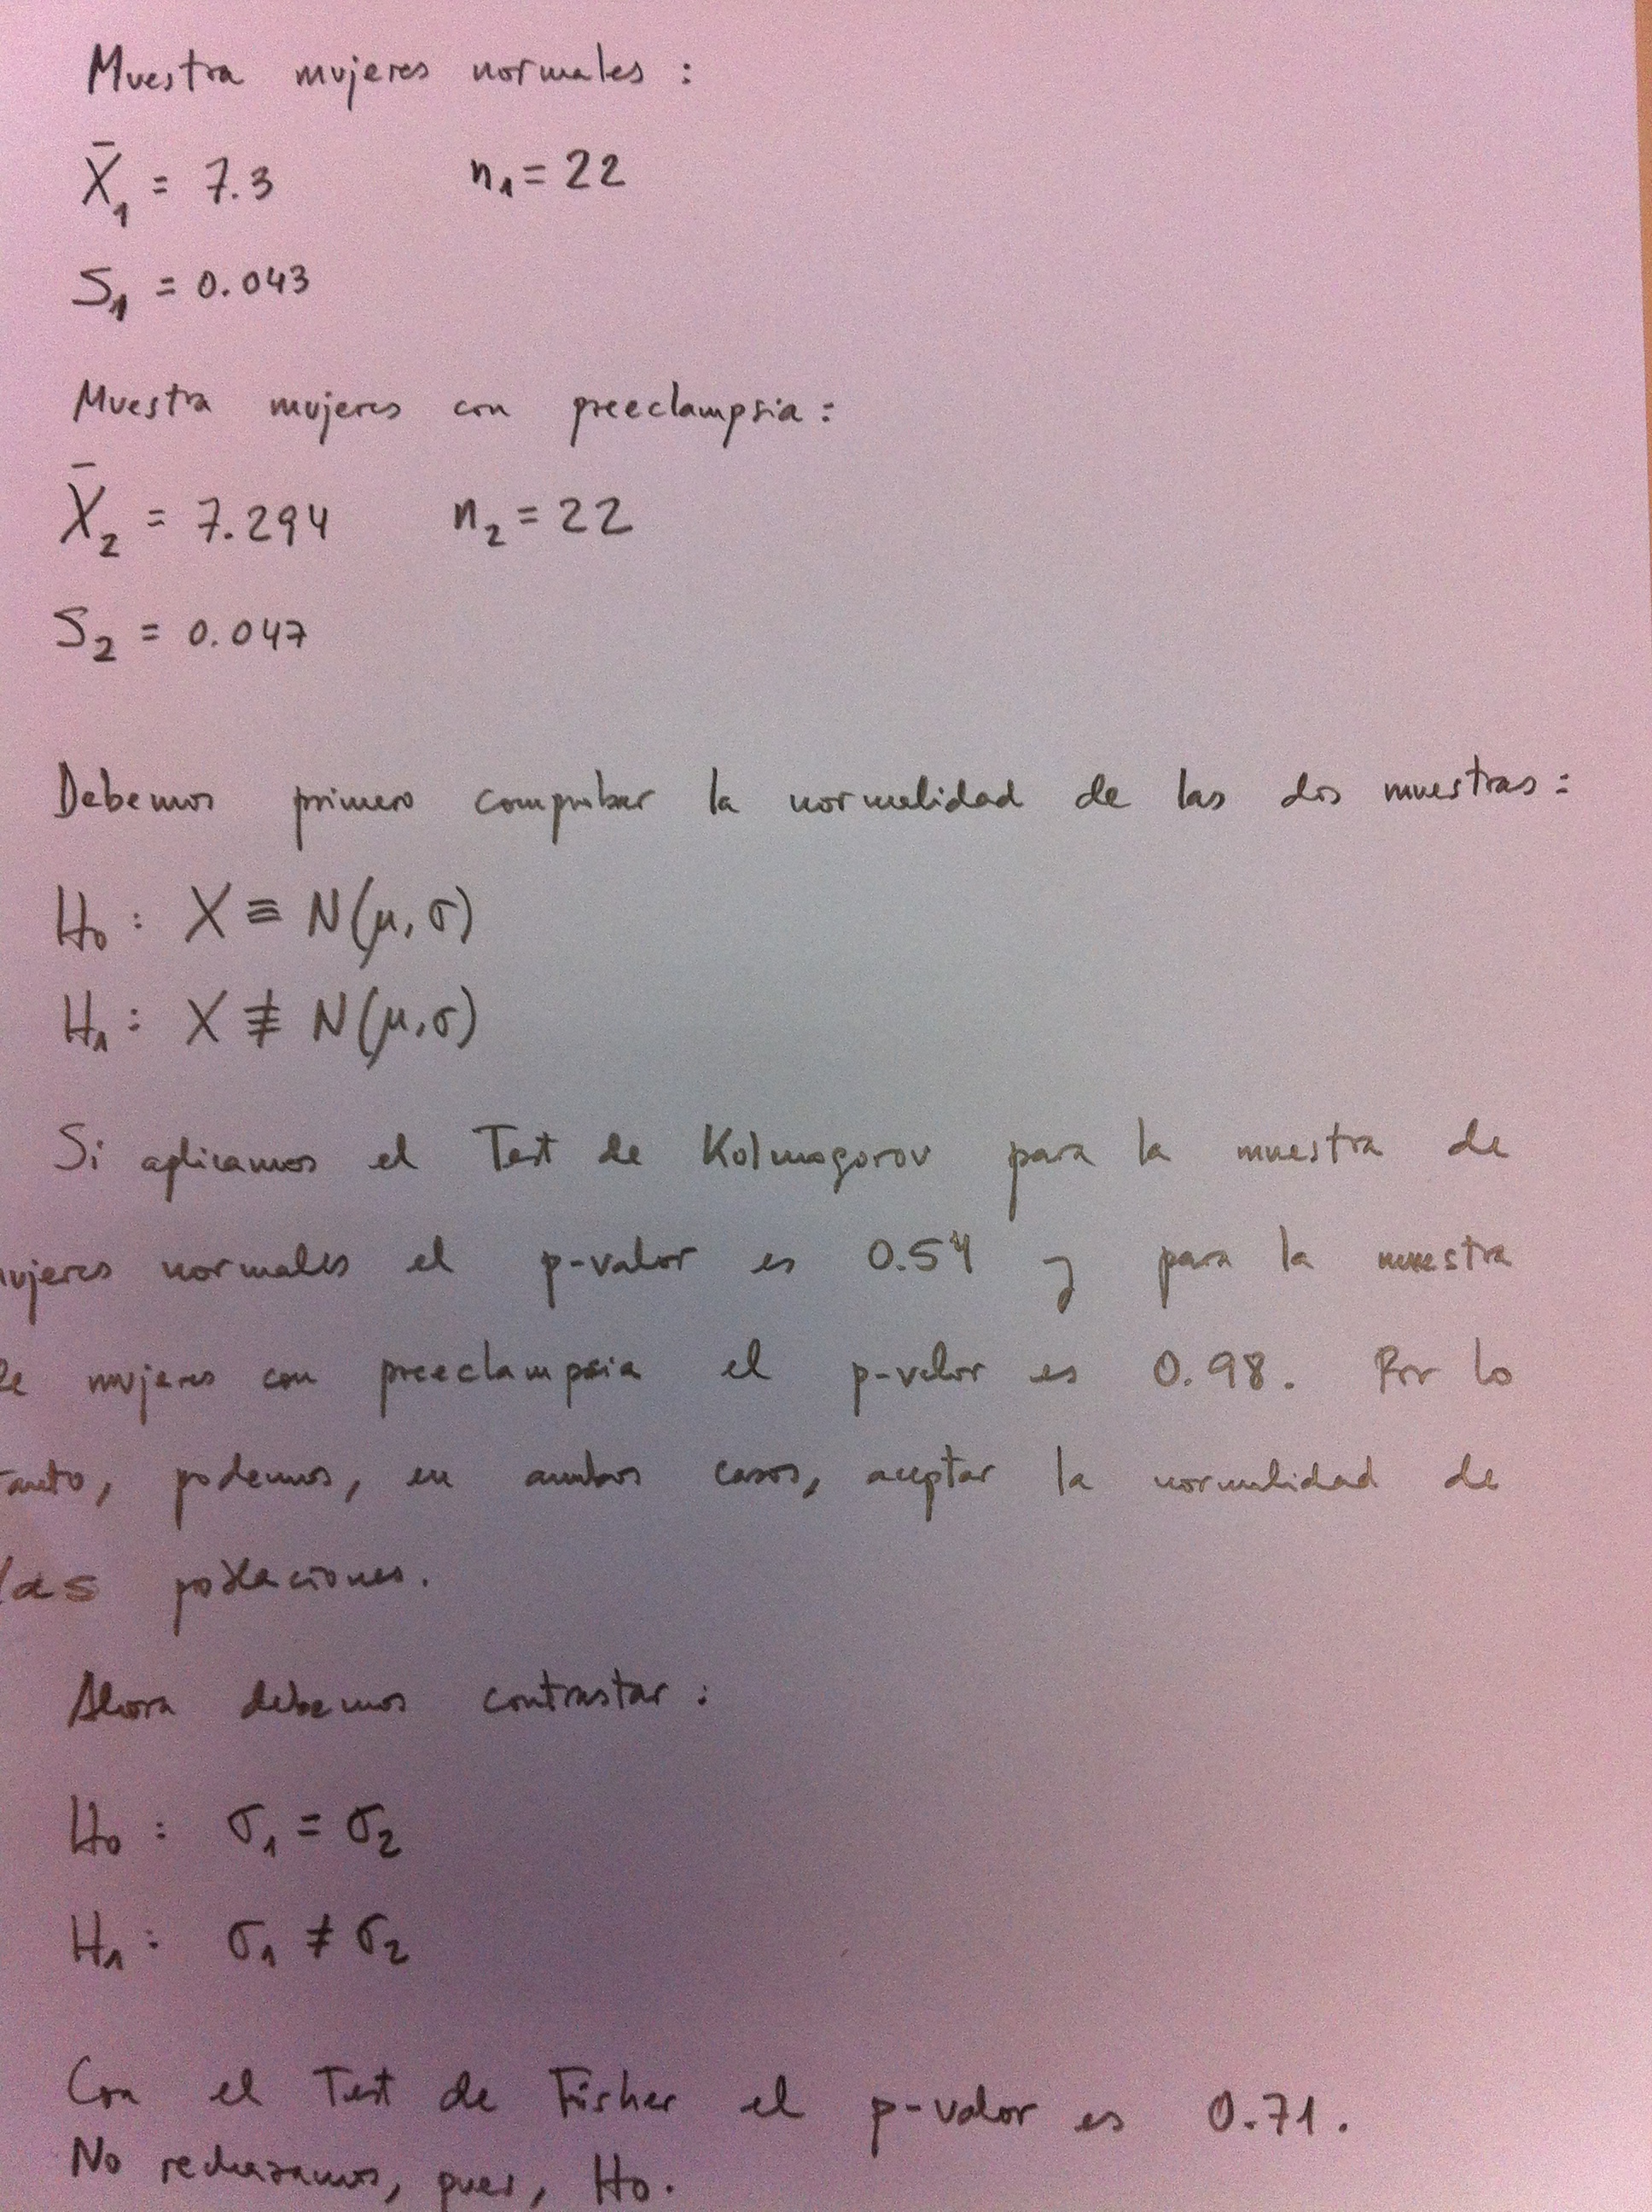 Muestra mujeres normales :
X̄₁ = 7.3 n₁ = 22
S₁ = 0.043
Muestra mujeres con preeclampsia :
X̄₂ = 7.294 n₂ = 22
S₂ = 0.047
Debemos primero comprobar la normalidad de las dos muestras :
H₀ : X ≡ N(μ, σ)
H₁ : X ≢ N(μ, σ)
Si aplicamos el Test de Kolmogorov para la muestra de
ujeres normales el p-valor es 0.54 y para la muestra
de mujeres con preeclampsia el p-valor es 0.98. Por lo
tanto, podemos, en ambos casos, aceptar la normalidad de
las poblaciones.
Ahora debemos contrastar :
H₀ : σ₁ = σ₂
H₁ : σ₁ ≠ σ₂
Con el Test de Fisher el p-valor es 0.71.
No rechazamos, pues, H₀.